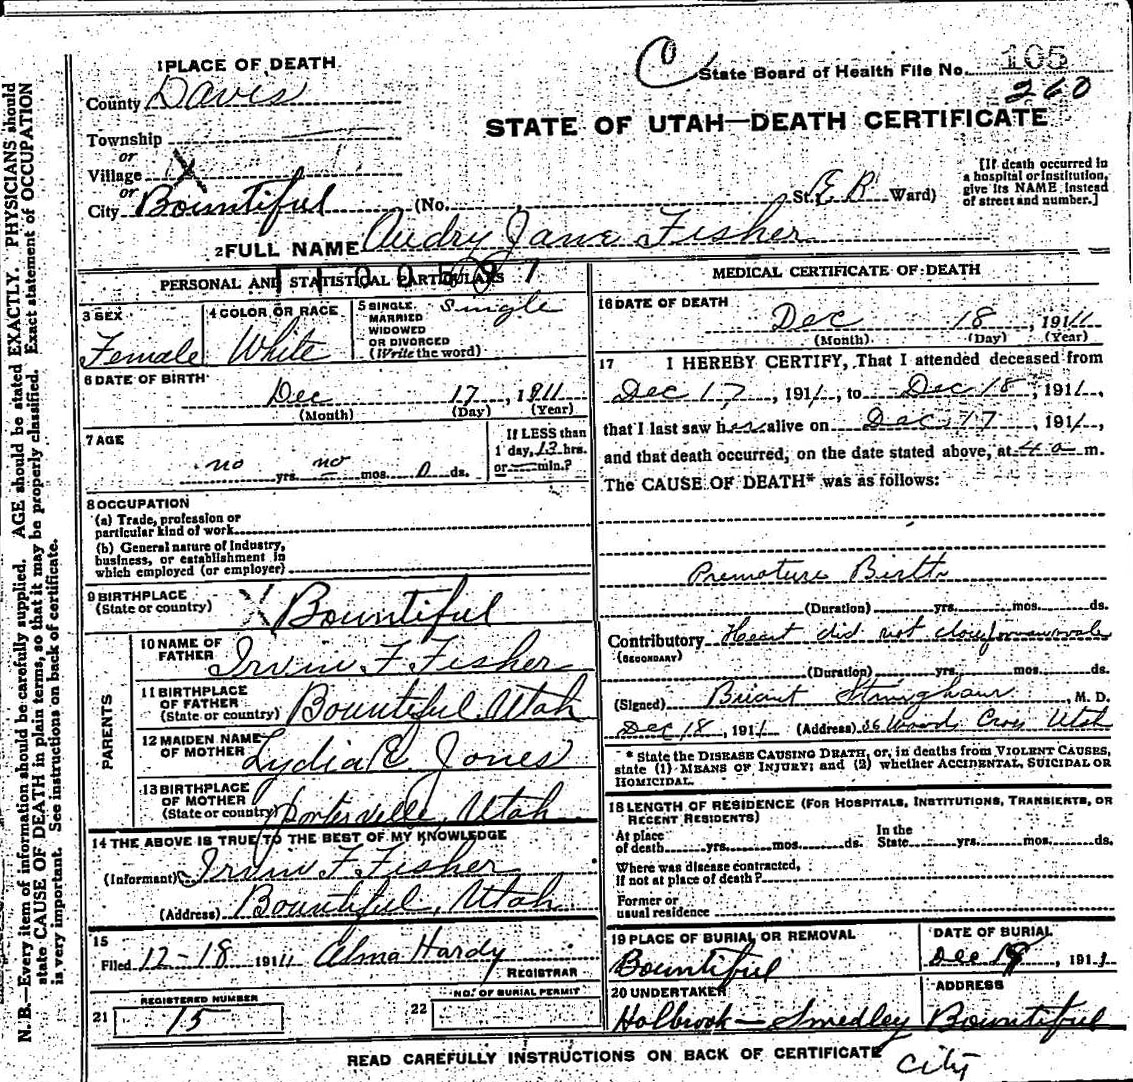 1 PLACE OF DEATH
County Davis
Township
or
Village X
or
City Bountiful (No. St. E B Ward)
C State Board of Health File No. 105
260
STATE OF UTAH—DEATH CERTIFICATE
[If death occurred in
a hospital or institution,
give its NAME instead
of street and number.]
2 FULL NAME Audry Jane Fisher
PERSONAL AND STATISTICAL PARTICULARS
3 SEX
Female
4 COLOR OR RACE
White
5 SINGLE, Single
MARRIED
WIDOWED
OR DIVORCED
(Write the word)
6 DATE OF BIRTH
Dec 17, 1911
(Month) (Day) (Year)
7 AGE
no yrs. no mos. 0 ds.
If LESS than
1 day, 13 hrs.
or — min.?
8 OCCUPATION
(a) Trade, profession or
particular kind of work
(b) General nature of Industry,
business, or establishment in
which employed (or employer)
9 BIRTHPLACE
(State or country) X Bountiful
PARENTS
10 NAME OF
FATHER Irvin F. Fisher
11 BIRTHPLACE
OF FATHER
(State or country) Bountiful, Utah
12 MAIDEN NAME
OF MOTHER Lydia E Jones
13 BIRTHPLACE
OF MOTHER
(State or country) Porterville, Utah
14 THE ABOVE IS TRUE TO THE BEST OF MY KNOWLEDGE
(Informant) Irvin F. Fisher
(Address) Bountiful, Utah
15
Filed 12-18 1911 Alma Hardy
REGISTRAR
REGISTERED NUMBER
21 15
NO. OF BURIAL PERMIT
22
MEDICAL CERTIFICATE OF DEATH
16 DATE OF DEATH
Dec 18, 1911
(Month) (Day) (Year)
17 I HEREBY CERTIFY, That I attended deceased from
Dec 17, 1911, to Dec 18, 1911,
that I last saw her alive on Dec 17, 1911,
and that death occurred, on the date stated above, at 4 a m.
The CAUSE OF DEATH* was as follows:
Premature Birth
(Duration) yrs. mos. ds.
Contributory Heart did not close
(SECONDARY)
(Duration) yrs. mos. ds.
(Signed) Briant Stringham M. D.
Dec 18, 1911 (Address) Woods Cross Utah
* State the DISEASE CAUSING DEATH, or, in deaths from VIOLENT CAUSES,
state (1) MEANS OF INJURY; and (2) whether ACCIDENTAL, SUICIDAL OR
HOMICIDAL.
18 LENGTH OF RESIDENCE (FOR HOSPITALS, INSTITUTIONS, TRANSIENTS, OR
RECENT RESIDENTS)
At place In the
of death yrs. mos. ds. State yrs. mos. ds.
Where was disease contracted,
if not at place of death?
Former or
usual residence
19 PLACE OF BURIAL OR REMOVAL
Bountiful
DATE OF BURIAL
Dec 18, 1911
20 UNDERTAKER
Holbrook — Smedley
ADDRESS
Bountiful
City
READ CAREFULLY INSTRUCTIONS ON BACK OF CERTIFICATE
N. B.—Every item of information should be carefully supplied. AGE should be stated EXACTLY. PHYSICIANS should
state CAUSE OF DEATH in plain terms, so that it may be properly classified. Exact statement of OCCUPATION
is very important. See instructions on back of certificate.